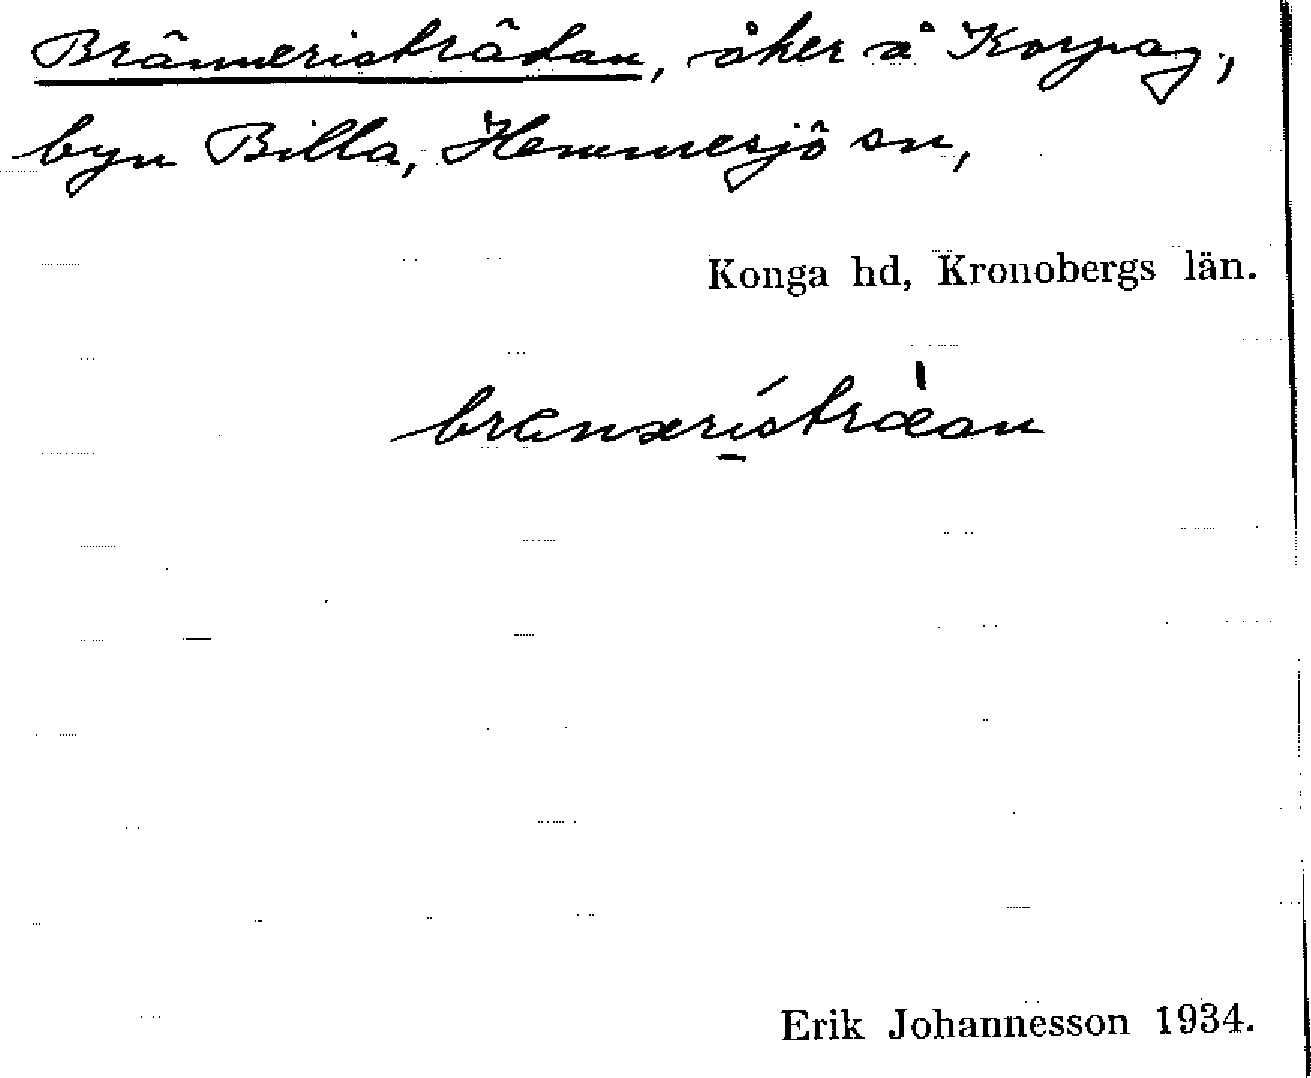 Bränneristrädan, åker å Korpag,
byn Billa, Hemmesjö sn,
Konga hd, Kronobergs län.
Erik Johannesson 1934.